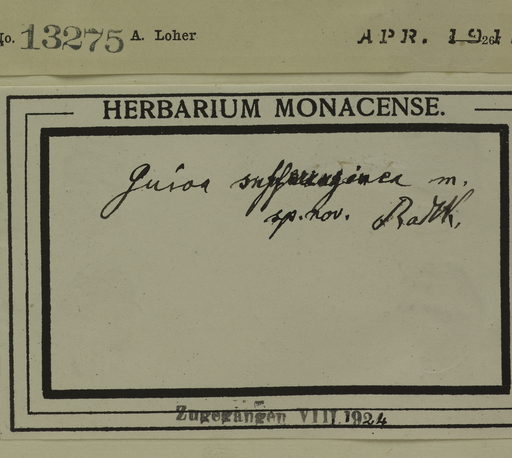 No. 13275 A. Loher APR. 191
HERBARIUM MONACENSE.
Guioa sufferruginea m.
sp. nov. Radlk.
Zugegangen VIII. 1924